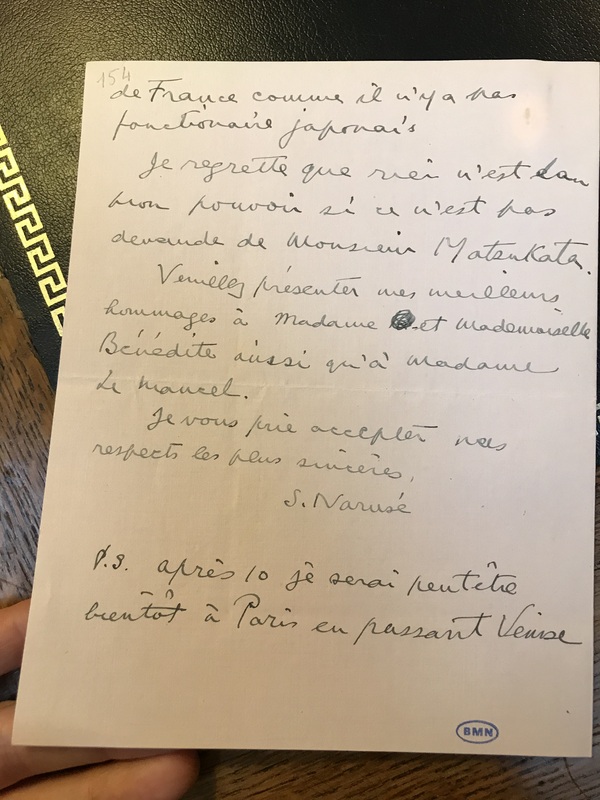 154
de France comme il n'y a pas
fonctionaire japonais
Je regrette que rien n'est dan
mon pouvoir si ce n'est pas
demande de Monsieur Matsukata.
Veuillez présenter mes meilleurs
hommages à Madame et Mademoiselle
Bénédite aussi qu'à Madame
Le Mancel.
Je vous prie accepter mes
respects les plus sincères,
S. Narusé
P.S. après 10 je serai peutêtre
bientôt à Paris en passant Venise
BMN